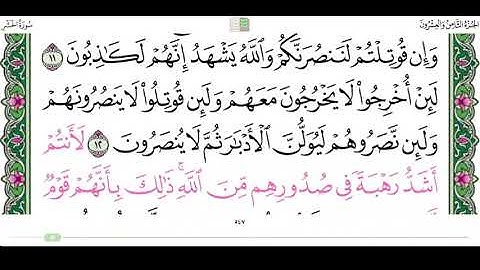 الجزء الثامن والعشرون
سورة الحشر
وَإِن قُوتِلْتُمْ لَنَنصُرَنَّكُمْ وَاللَّهُ يَشْهَدُ إِنَّهُمْ لَكَاذِبُونَ ١١
لَئِنْ أُخْرِجُوا لَا يَخْرُجُونَ مَعَهُمْ وَلَئِن قُوتِلُوا لَا يَنصُرُونَهُمْ
وَلَئِن نَّصَرُوهُمْ لَيُوَلُّنَّ الْأَدْبَارَ ثُمَّ لَا يُنصَرُونَ ١٢ لَأَنتُمْ
أَشَدُّ رَهْبَةً فِي صُدُورِهِم مِّنَ اللَّهِ ۚ ذَٰلِكَ بِأَنَّهُمْ قَوْمٌ
٥٤٧